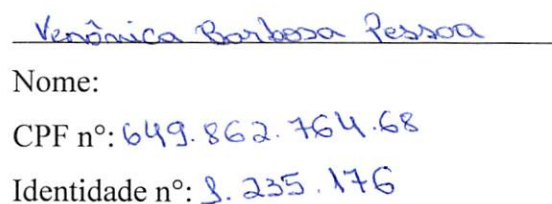 Verônica Barbosa Pessoa
Nome:
CPF n°: 649.862.764.68
Identidade n°: 1.235.176